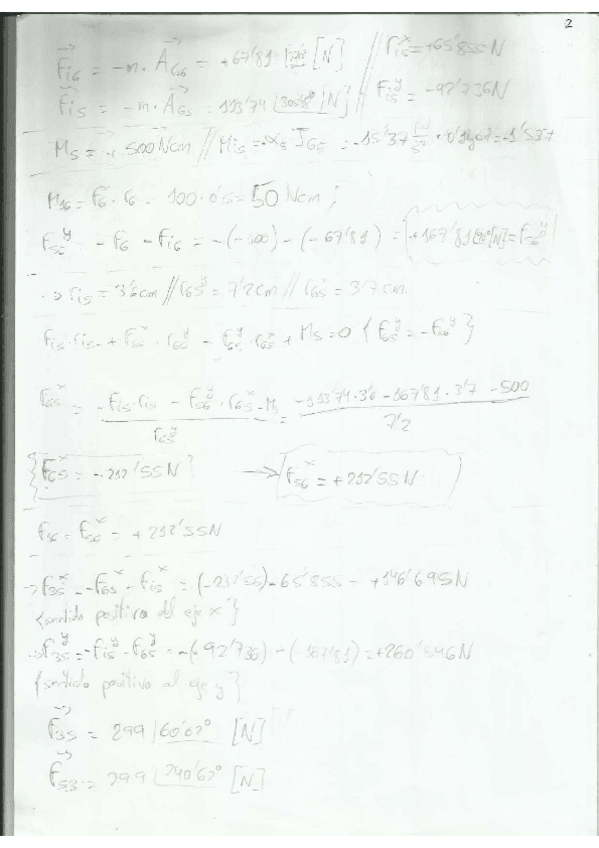 2
F⃗i6 = -m · A⃗G6 = +67'81 [N] // Fi5ˣ = +65'855N
F⃗i5 = -m · A⃗G5 = 113'74 [N] // Fi5ʸ = -92'736N
M5 = + 500Ncm // Mi5 = -α5 · IG5 = -15'37 · = -1'537
M16 = F6 · r6 = 100 · 0'5 = 50 Ncm ;
F56ʸ = -F6 - Fi6 = -(-100) - (-67'81) = +167'81 [N] = F56ʸ
→ ri5 = 3'6cm // r65ʸ = 7'2cm // r65ˣ = 3'7cm
Fi5·ri5 + F65ˣ · r65ʸ - F65ʸ · r65ˣ + M5 = 0 { F65ʸ = -F56ʸ }
F65ˣ = (-Fi5·ri5 - F56ʸ · r65ˣ - M5) / r65ʸ = (-113'74·3'6 - 167'81·3'7 - 500) / 7'2
{ F65ˣ = -212'55N } → F56ˣ = +212'55N
F16 = F56ˣ = +212'55N
→ F35ˣ = -F65ˣ - Fi5ˣ = (-212'55) - 65'855 = +146'695N
{sentido positivo del eje x}
→ F35ʸ = -Fi5ʸ - F65ʸ = -(-92'736) - (-167'81) = +260'546N
{sentido positivo al eje y}
F⃗35 = 299 |60'62° [N]
F⃗53 = 299 |240'62° [N]